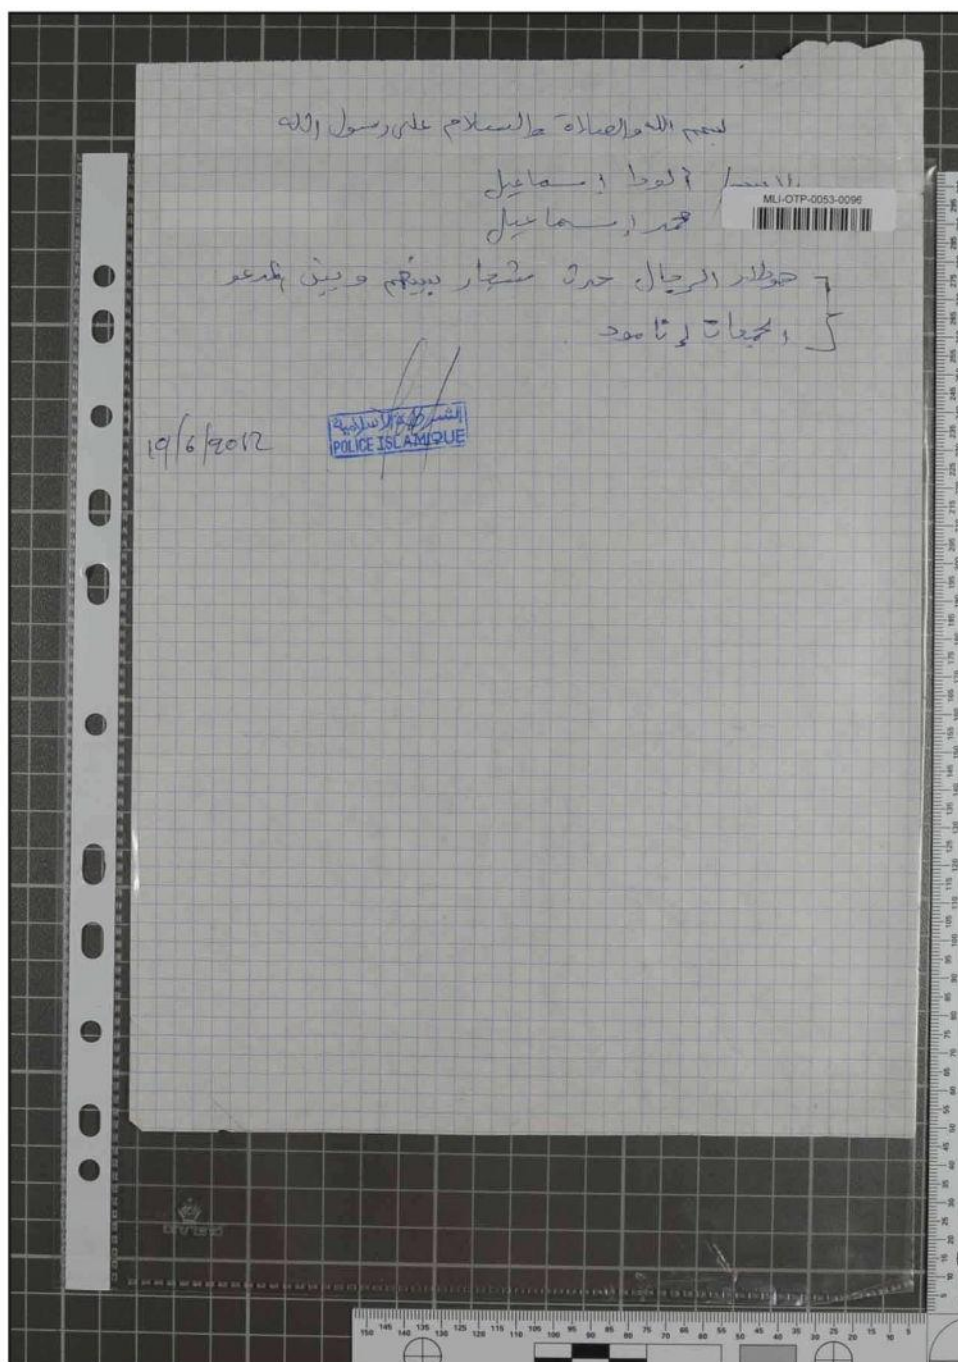 بسم الله والصلاة والسلام على رسول الله
الودا إسماعيل
MLI-OTP-0053-0096
محمد إسماعيل
الرجال حدث شجار بينهم وبين المدعو
إتامود
19/6/2012
الشرطة الإسلامية
POLICE ISLAMIQUE